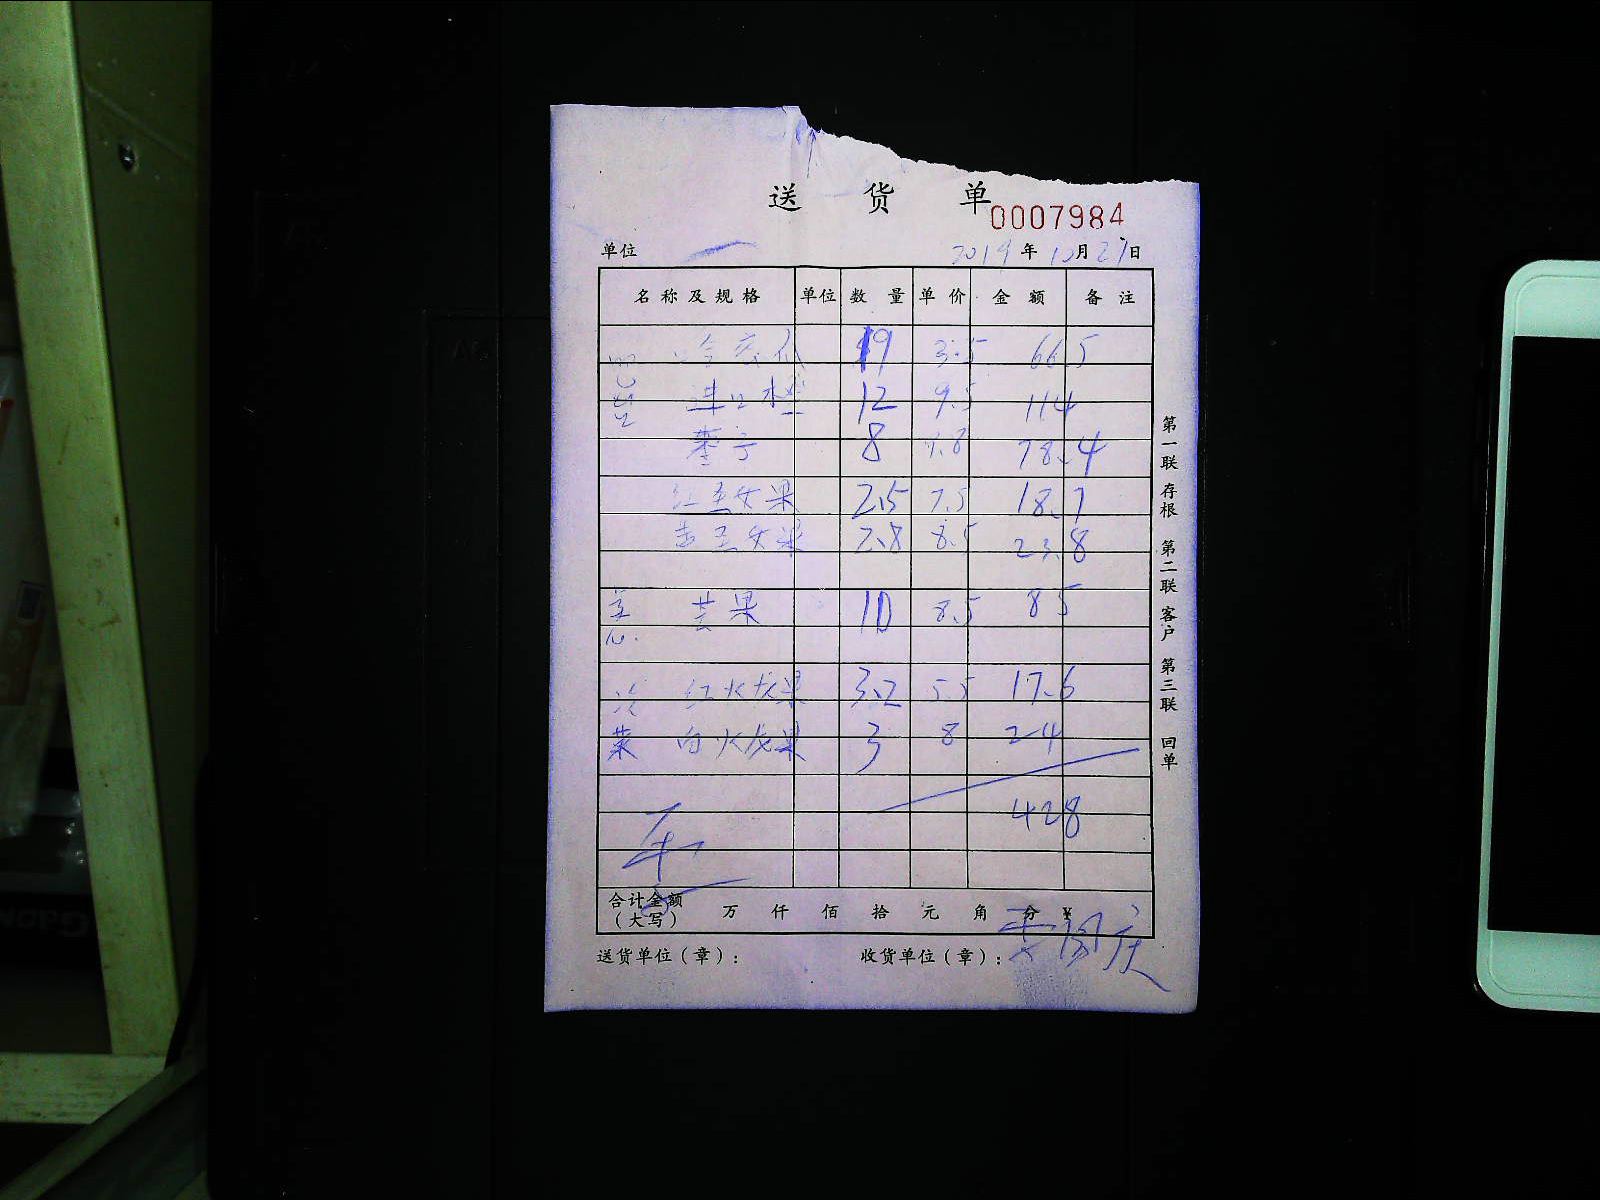 送 货 单
0007984
单位 2019 年 10 月 27 日
名 称 及 规 格 单位 数 量 单 价 金 额 备 注
哈密瓜 19 3.5 66.5
进口橙 12 9.5 114
李子 8 9.8 78.4
红圣女果 2.5 7.5 18.7
圣女果 2.8 8.5 23.8
芒果 10 8.5 85
冷 红火龙果 3.2 5.5 17.6
菜 白火龙果 3 8 24
428
合计金额
(大写) 万 仟 佰 拾 元 角 分 ¥
送货单位(章): 收货单位(章):
第一联 存根 第二联 客户 第三联 回单